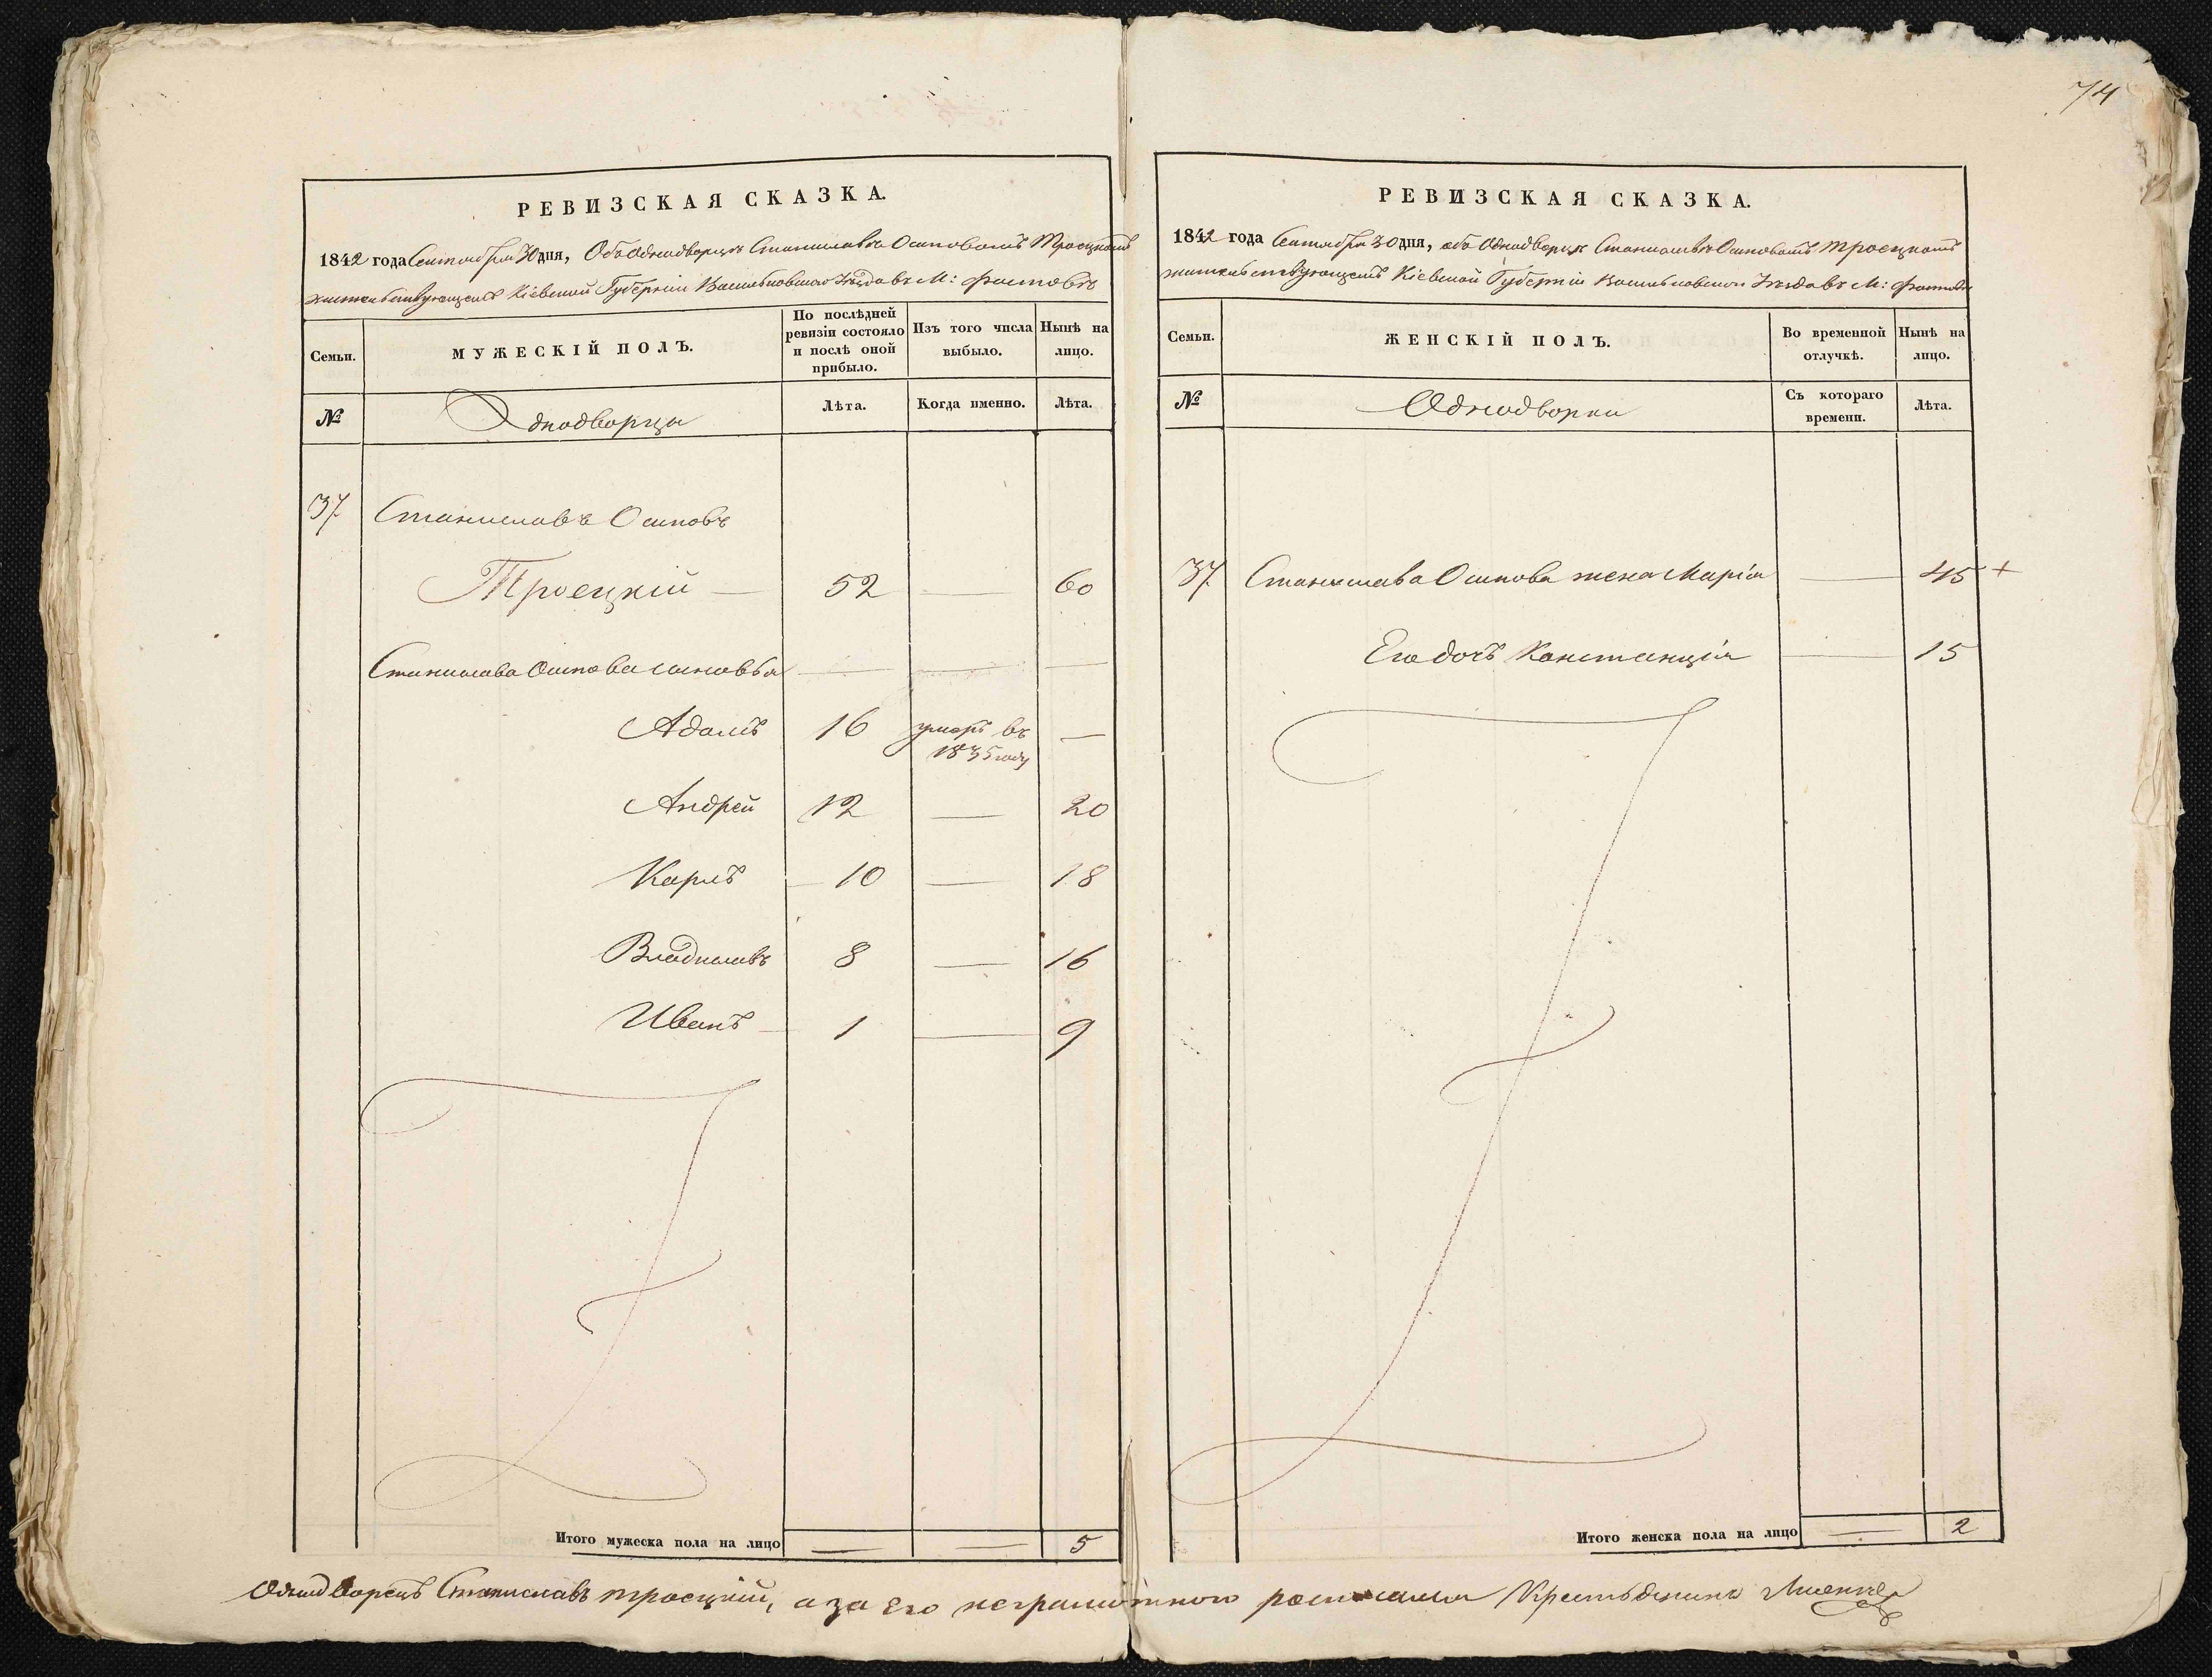 74
РЕВИЗСКАЯ СКАЗКА.
1842 года Сентября 30 дня, Объ Однодворцѣ Станиславѣ Осиповомъ Троецкомъ
жительствующемъ Кіевской Губерніи Васильковскаго Уѣзда въ М: Фастовѣ
Семьи.
МУЖЕСКІЙ ПОЛЪ.
По послѣдней ревизіи состояло и послѣ оной прибыло.
Изъ того числа выбыло.
Нынѣ на лицо.
№
Однодворцы
Лѣта.
Когда именно.
Лѣта.
37. Станиславъ Осиповъ
Троецкій — 52 — 60
Станислава Осипова сыновья — — —
Адамъ 16 умеръ въ 1835 году —
Андрей 12 — 20
Карлъ — 10 — 18
Владиславъ 8 — 16
Иванъ — 1 — 9
Итого мужеска пола на лицо — — 5
РЕВИЗСКАЯ СКАЗКА.
1842 года Сентября 30 дня, объ Однодворцѣ Станиславѣ Осиповомъ Троецкомъ
жительствующемъ Кіевской Губерніи Васильковскаго Уѣзда въ М: Фастовѣ
Семьи.
ЖЕНСКІЙ ПОЛЪ.
Во временной отлучкѣ.
Нынѣ на лицо.
№
Однодворки
Съ котораго времени.
Лѣта.
37. Станислава Осипова жена Марія — 45 +
Его дочь Констанція — 15
Итого женска пола на лицо — 2
Однодворецъ Станиславъ Троецкій, а за его неграмотного росписался Крестьянинъ